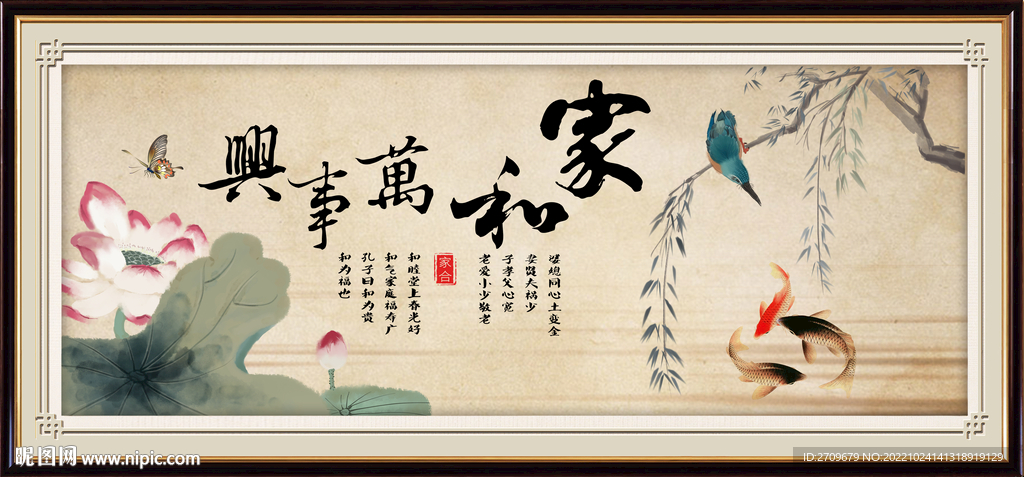 家和萬事興
婆媳同心土变金
妻贤夫祸少
子孝父心宽
老爱小少敬老
家合
和睦堂上春光好
和气家庭福寿广
孔子曰和为贵
和为福也
昵图网 www.nipic.com
ID:2709679 NO:20221024141318919129